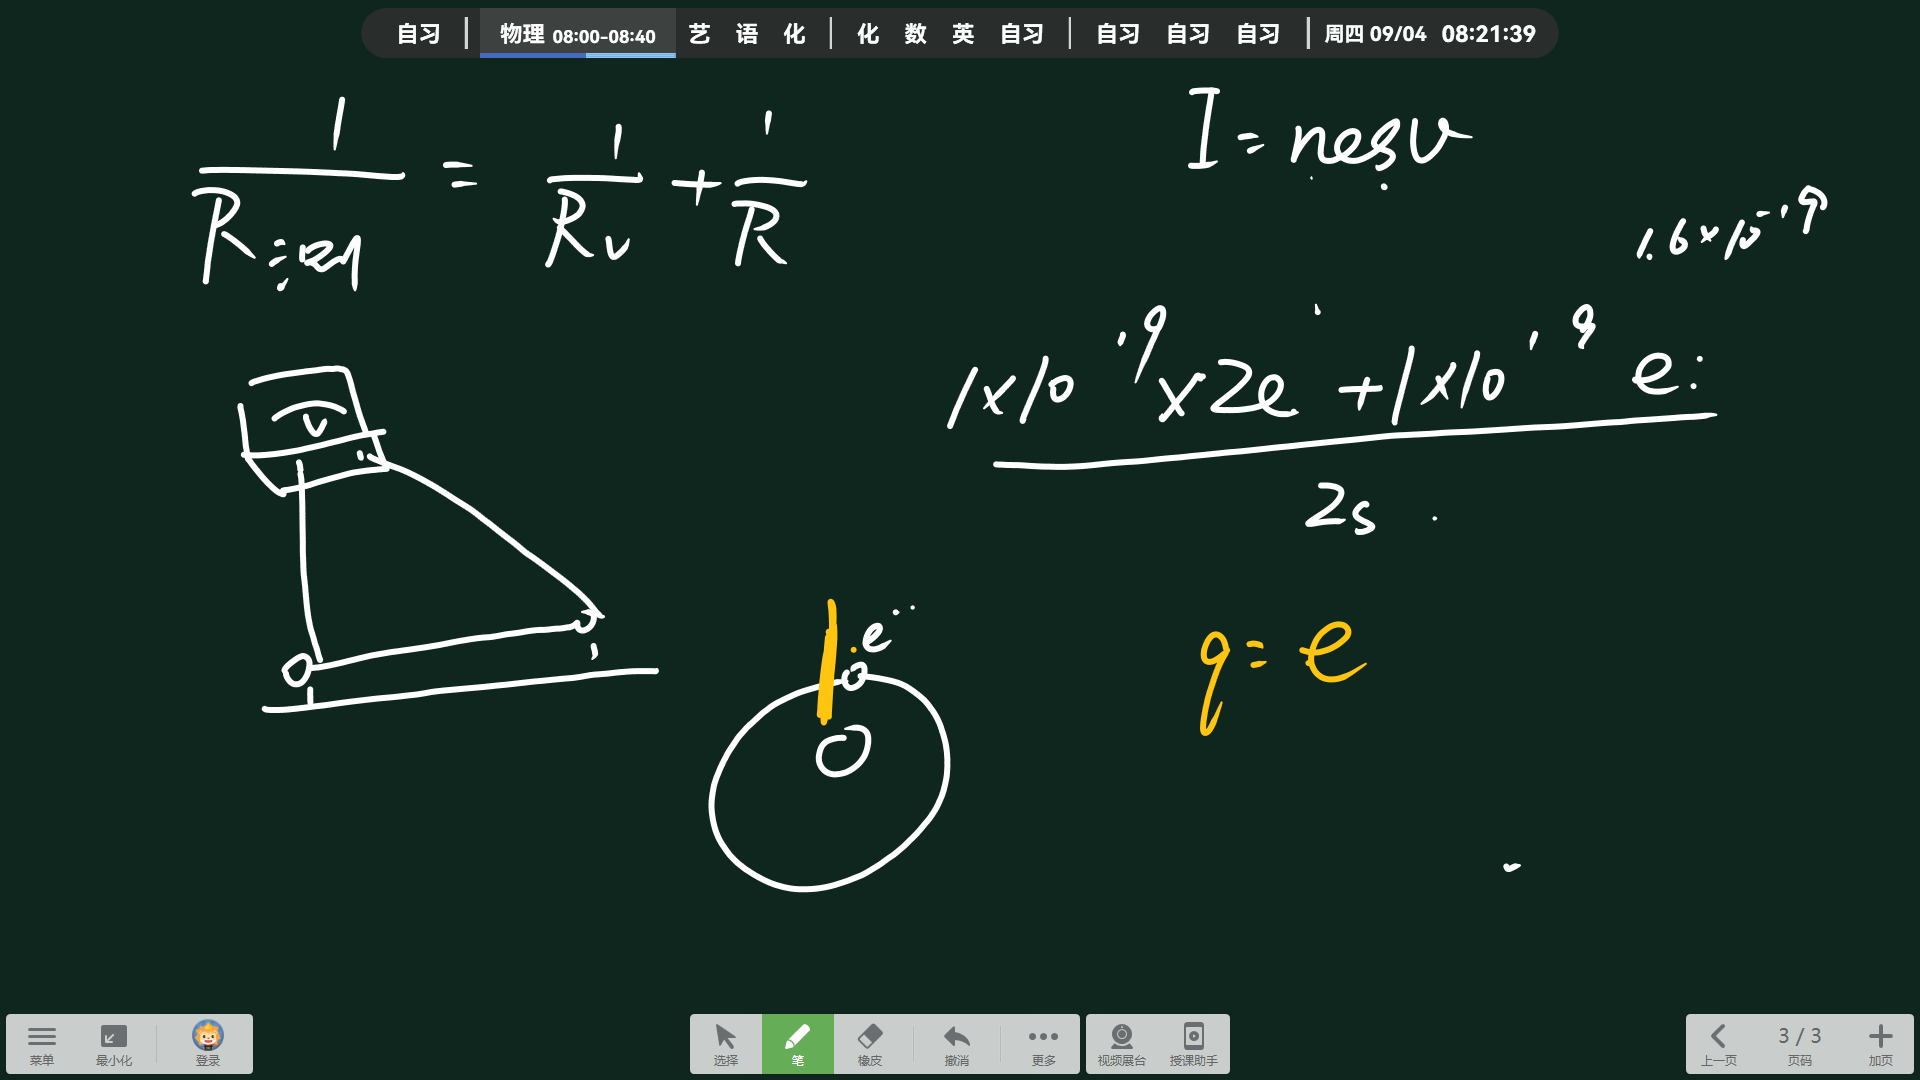 自习 | 物理 08:00-08:40 艺 语 化 | 化 数 英 自习 | 自习 自习 自习 | 周四 09/04 08:21:39
1/R = 1/Rv + 1/R
I = nesv
1.6×10⁻¹⁹
1×10¹⁹×2e + 1×10¹⁹ e
2s
V
e
q = e
菜单 最小化 登录 选择 笔 橡皮 撤消 更多 视频展台 授课助手 上一页 3 / 3 页码 加页